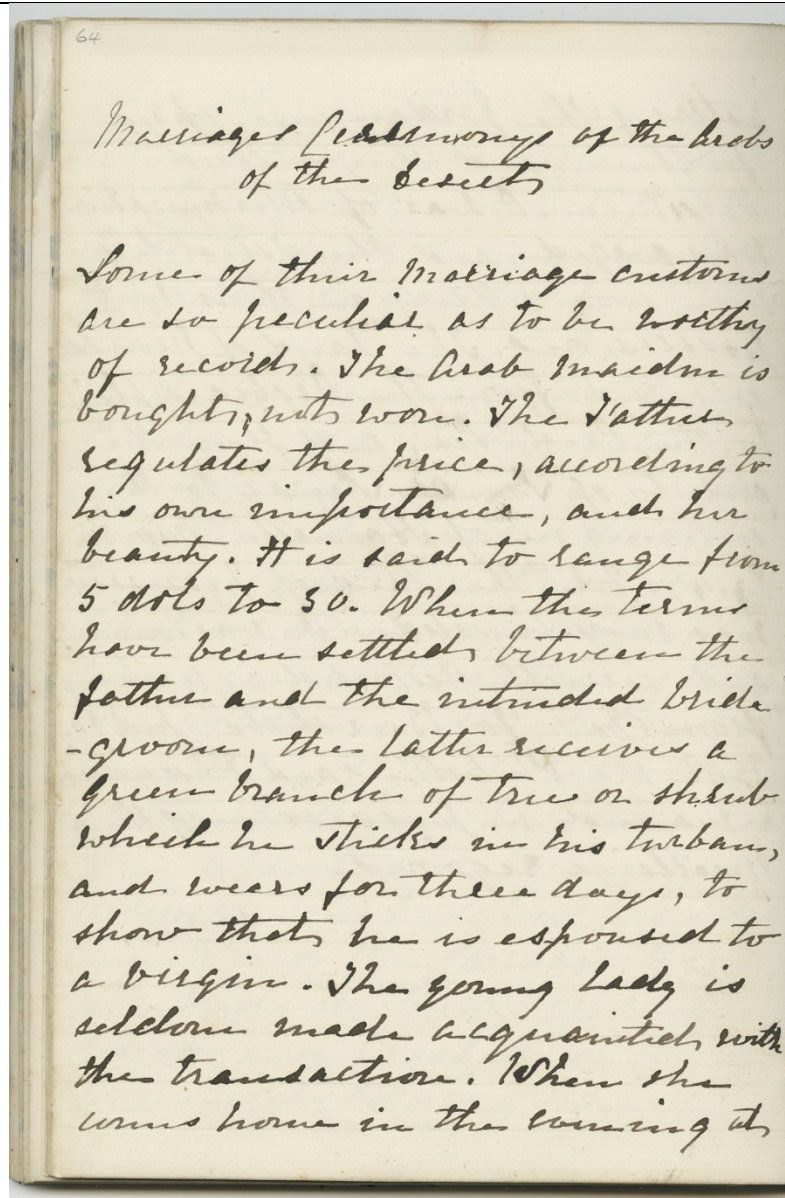 64
Marriages Ceremonys of the Arabs
of the Desert
Some of their Marriage customs
are so peculiar as to be worthy
of record. The Arab maiden is
bought, not won. The Father
regulates the price, according to
his own importance, and her
beauty. It is said to range from
5 dols to 30. When the terms
have been settled between the
father and the intended bride
-groom, the latter receives a
green branch of tree or shrub
which he sticks in his turban,
and wears for three days, to
show that he is espoused to
a virgin. The young lady is
seldom made acquainted with
the transaction. When she
comes home in the evening at